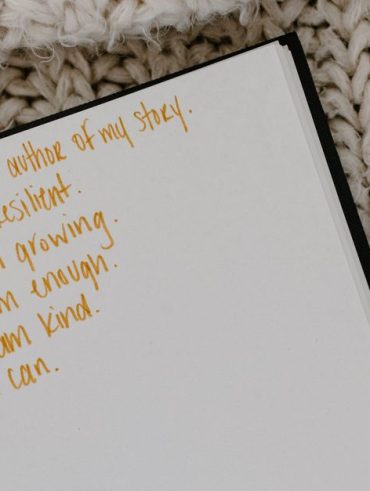 author of my story.
resilient.
growing.
enough.
am kind.
can.